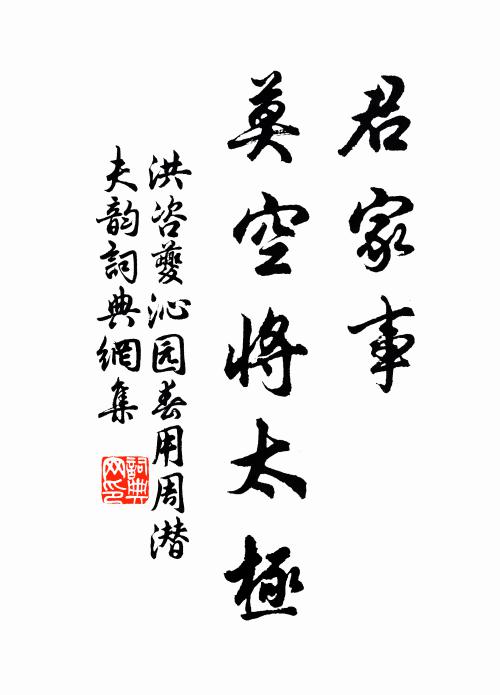 君家事
莫空將太極
洪咨夔沁园春用周潜
夫韵詞典網集
詞典网印